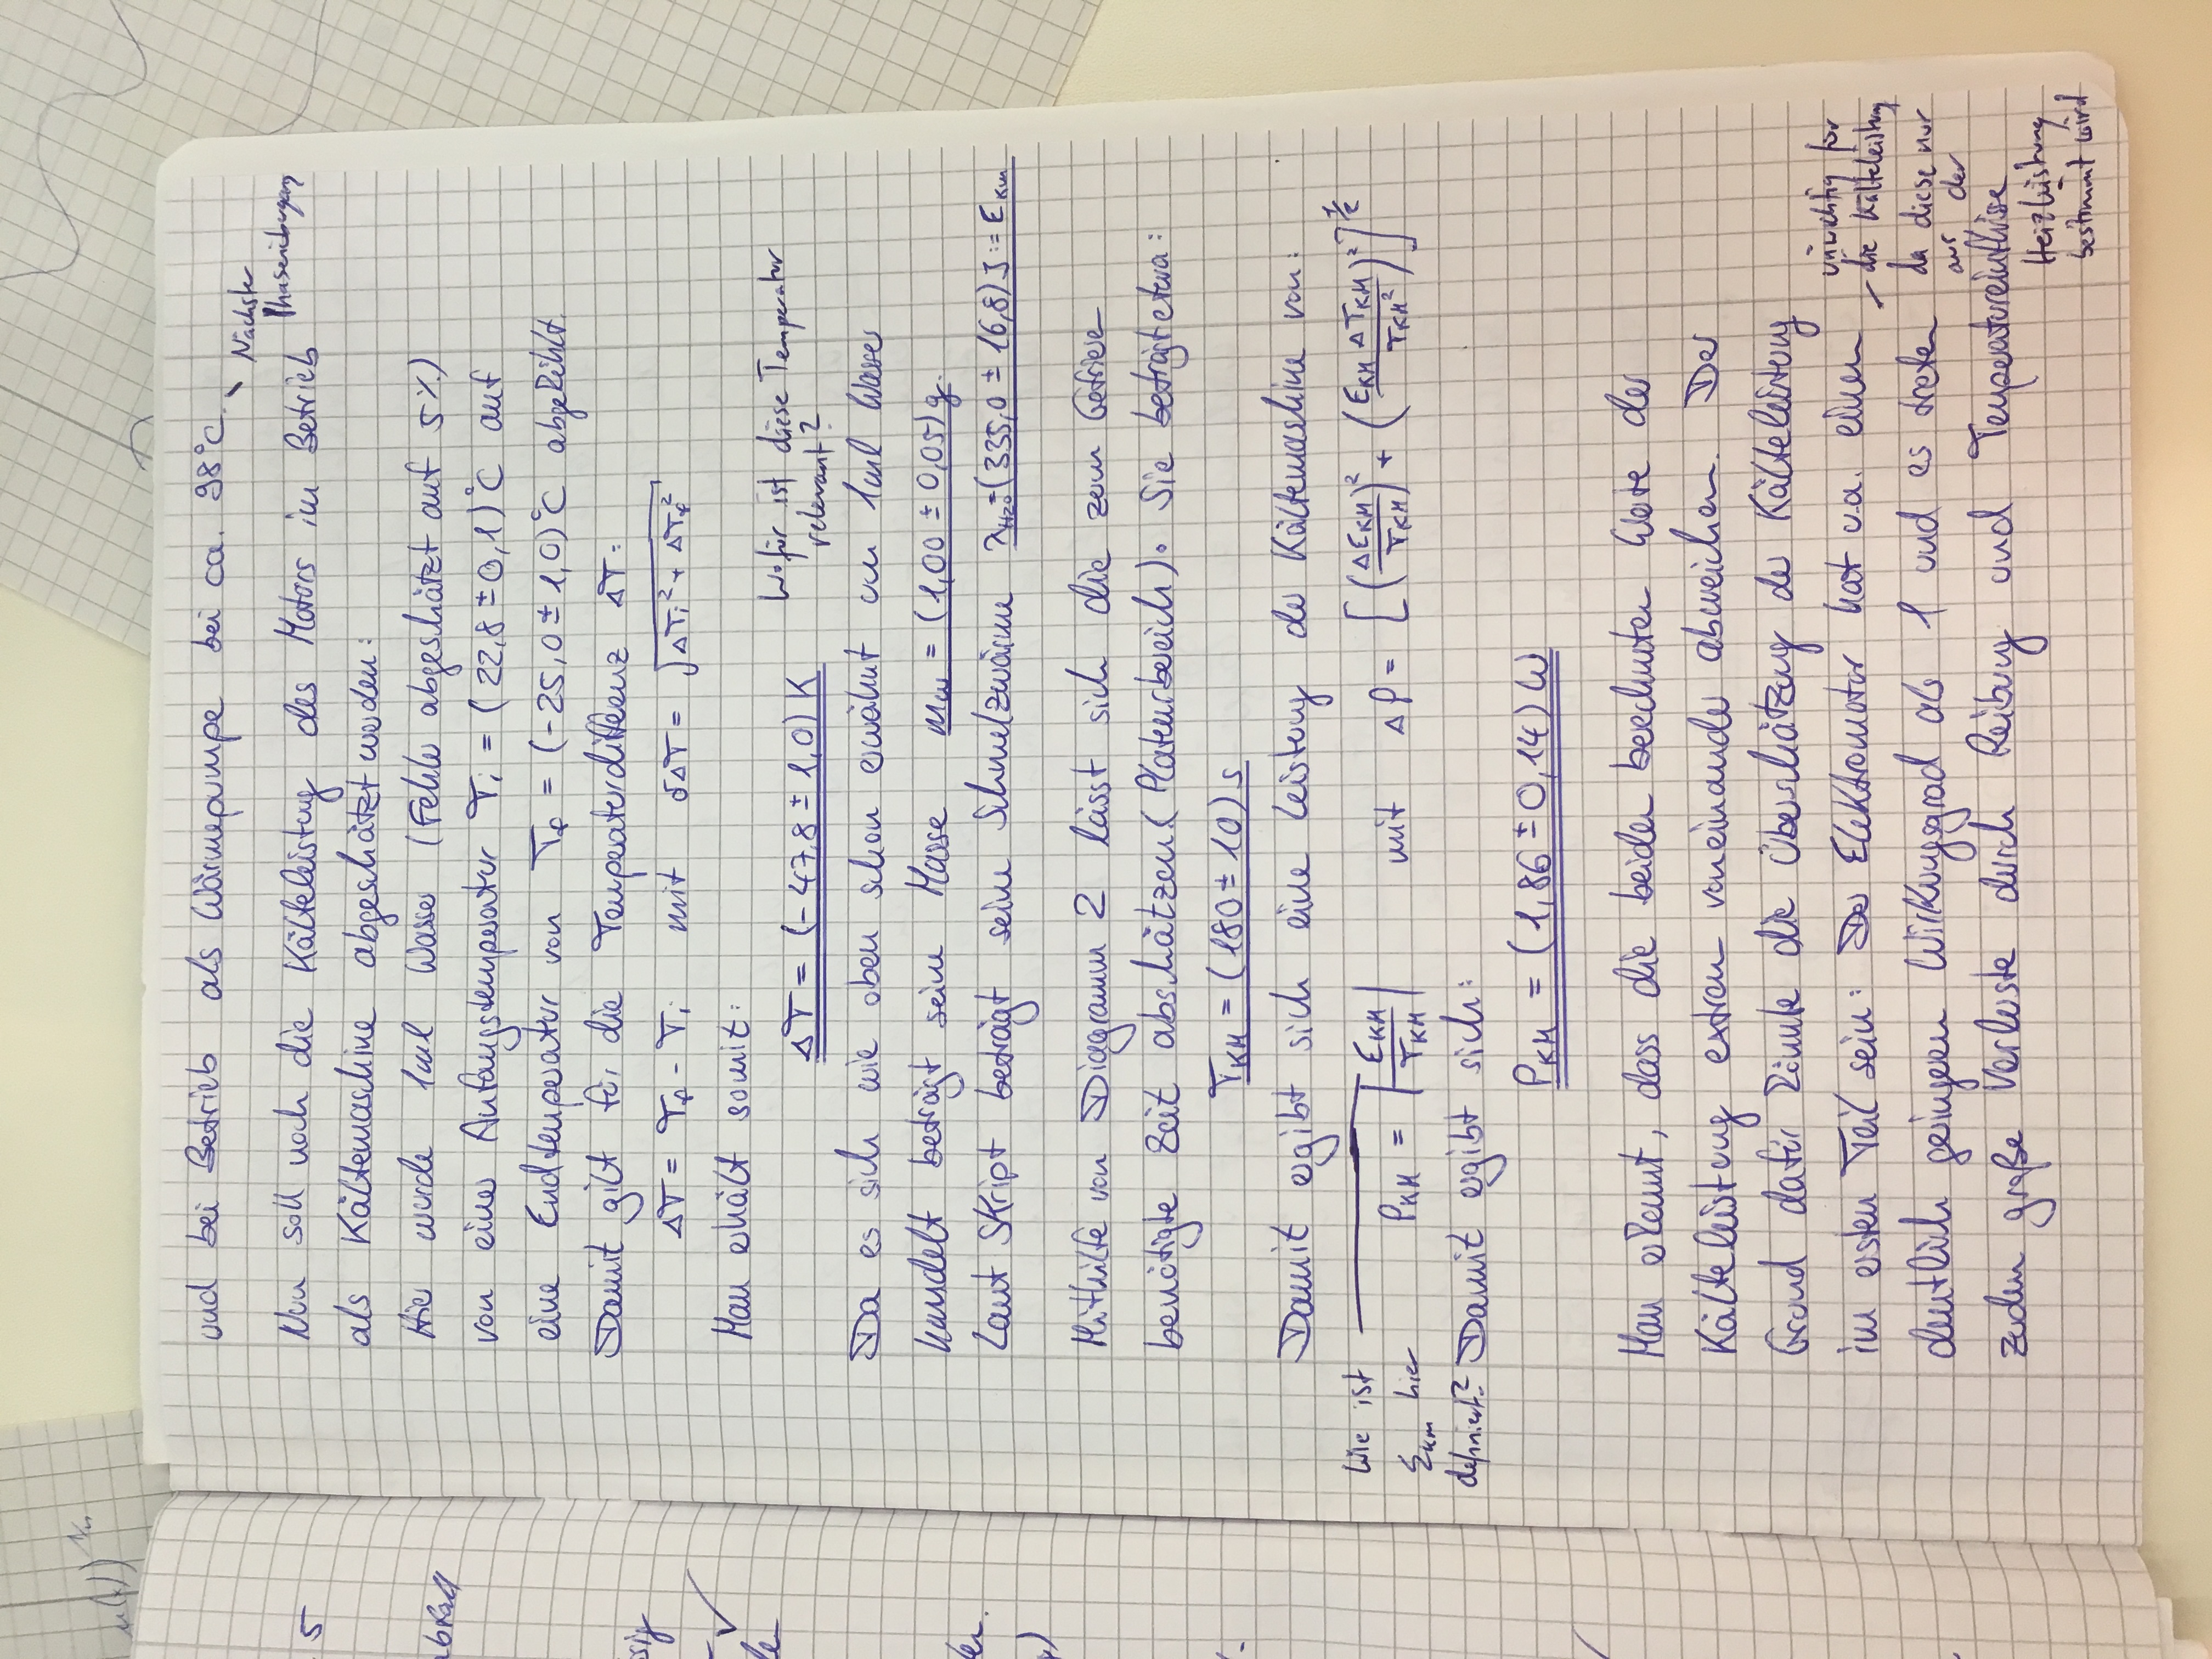 u(x))^1/n
und bei Betrieb als Wärmepumpe bei ca. 98°C.
Nächster
Phasenübergang
Nun soll noch die Kälteleistung des Motors im Betrieb
als Kältemaschine abgeschätzt werden:
Hier wurde 1ml Wasser (Fehler abgeschätzt auf 5%)
von einer Anfangstemperatur T_i = (22,8 ± 0,1)°C auf
eine Endtemperatur von T_f = (-25,0 ± 1,0)°C abgekühlt.
Damit gilt für die Temperaturdifferenz ΔT:
ΔT = T_f - T_i mit δΔT = √(ΔT_i² + ΔT_f²)
Man erhält somit:
ΔT = (-47,8 ± 1,0) K
Wofür ist diese Temperatur
relevant?
Da es sich wie oben schon erwähnt um 1ml Wasser
handelt beträgt seine Masse m_w = (1,00 ± 0,05)g.
Laut Skript beträgt seine Schmelzwärme λ_H2O = (335,0 ± 16,8) J := E_KM
Mithilfe von Diagramm 2 lässt sich die zum Gefrieren
benötigte Zeit abschätzen (Plateurbereich). Sie beträgt etwa:
T_KM = (180 ± 10) s
Damit ergibt sich eine Leistung der Kältemaschine von:
P_KM = |E_KM / T_KM| mit ΔP = [(ΔE_KM / T_KM)² + (E_KM ΔT_KM / T_KM²)²]^1/2
Wie ist
E_KM hier
definiert?
Damit ergibt sich:
P_KM = (1,86 ± 0,14) W
Man erkennt, dass die beiden berechneten Werte der
Kälteleistung extrem voneinander abweichen. Der
Grund dafür könnte die Überschätzung der Kälteleistung
im ersten Teil sein: Der Elektromotor hat u.a. einen
deutlich geringeren Wirkungsgrad als 1 und es treten
zudem große Verluste durch Reibung und Temperatureinflüsse
unwichtig für
die Kälteleistung
da diese nur
aus der
Heizleistung
bestimmt wird
5
abfall